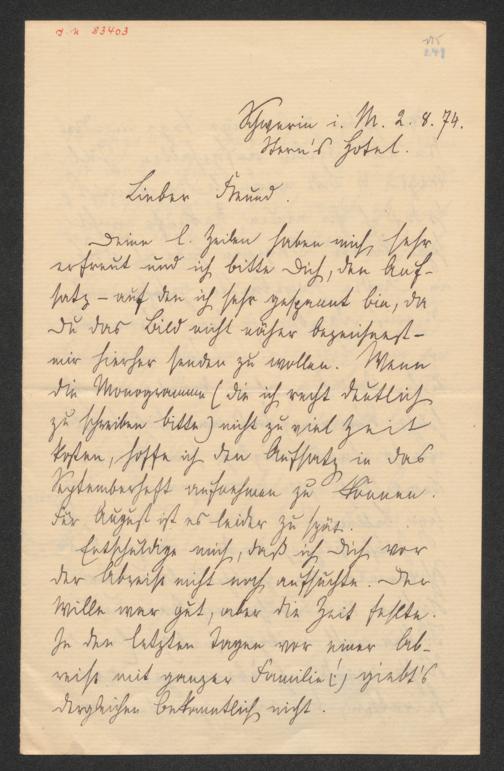 J. N 83403
249
Schwerin i. M. 2. 8. 74.
Stern's Hotel.
Lieber Freund.
Deine l. Zeilen haben mich sehr
erfreut und ich bitte Dich, den Auf-
satz – auf den ich sehr gespannt bin, da
Du das Bild nicht näher bezeichnest –
mir hierher senden zu wollen. Wenn
die Monogramme (die ich recht deutlich
zu schreiben bitte) nicht zu viel Zeit
kosten, hoffe ich den Aufsatz in das
Septemberheft aufnehmen zu können.
Für August ist es leider zu spät.
Entschuldige mich, daß ich Dich vor
der Abreise nicht noch aufsuchte. Der
Wille war gut, aber die Zeit fehlte.
In den letzten Tagen vor einer Ab-
reise mit ganzer Familie (!) giebt's
dergleichen bekanntlich nicht.